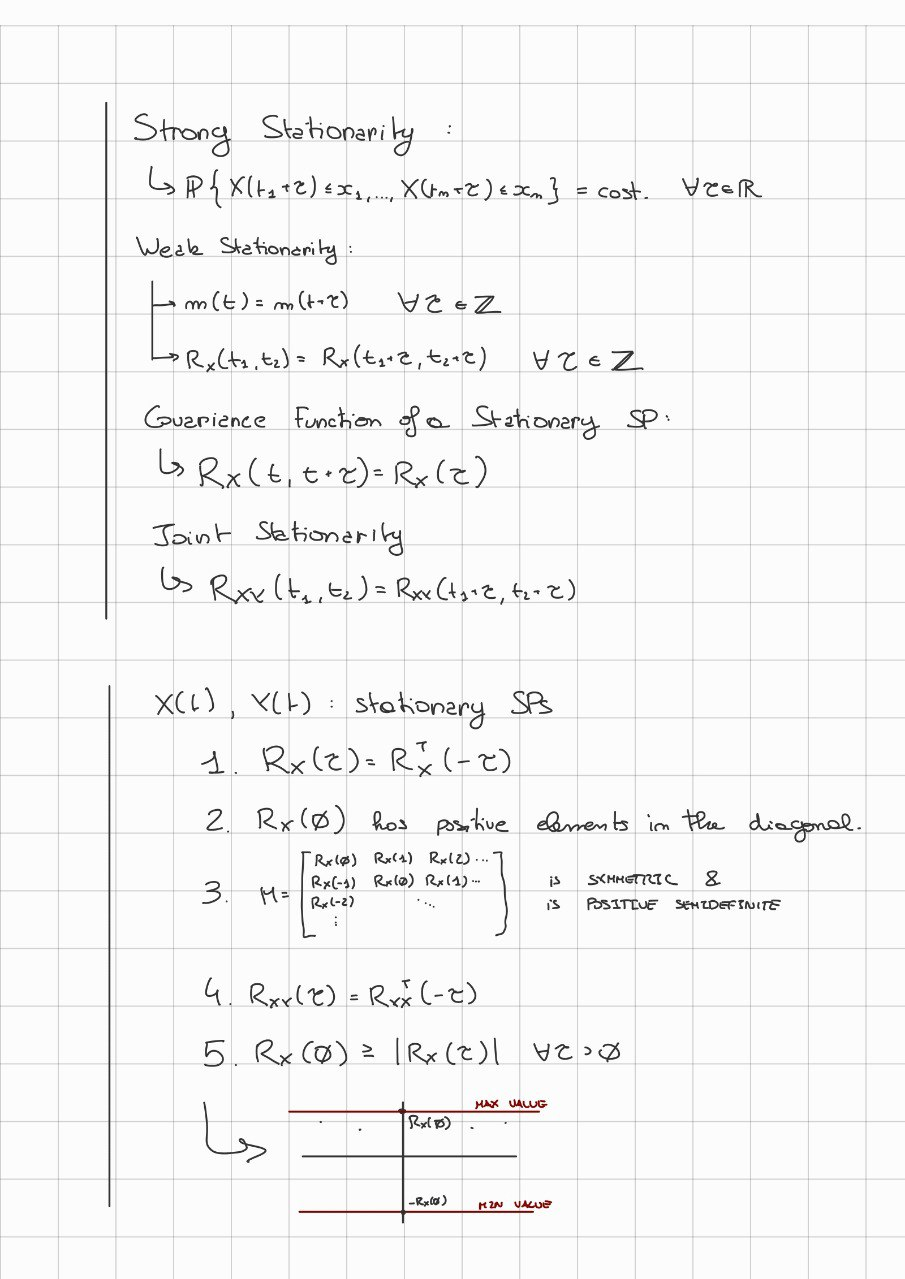 Strong Stationarity :
↳ ℙ{ X(t₁+τ) ≤ x₁, ..., X(tₙ+τ) ≤ xₙ } = cost. ∀τ∈ℝ
Weak Stationarity :
→ m(t) = m(t+τ) ∀τ ∈ ℤ
→ Rₓ(t₁, t₂) = Rₓ(t₁+τ, t₂+τ) ∀τ ∈ ℤ
Covariance Function of a Stationary SP:
↳ Rₓ(t, t+τ) = Rₓ(τ)
Joint Stationarity
↳ R_XY(t₁, t₂) = R_XY(t₁+τ, t₂+τ)
X(t), Y(t) : stationary SPs
1. Rₓ(τ) = Rₓᵀ(-τ)
2. Rₓ(∅) has positive elements in the diagonal.
3. M = [ Rₓ(∅) Rₓ(1) Rₓ(2) ...
Rₓ(-1) Rₓ(∅) Rₓ(1) ...
Rₓ(-2) ...
⋮ ]
is SYMMETRIC &
is POSITIVE SEMIDEFINITE
4. R_XY(τ) = R_YXᵀ(-τ)
5. Rₓ(∅) ≥ |Rₓ(τ)| ∀τ > ∅
MAX VALUE
Rₓ(∅)
-Rₓ(∅)
MIN VALUE